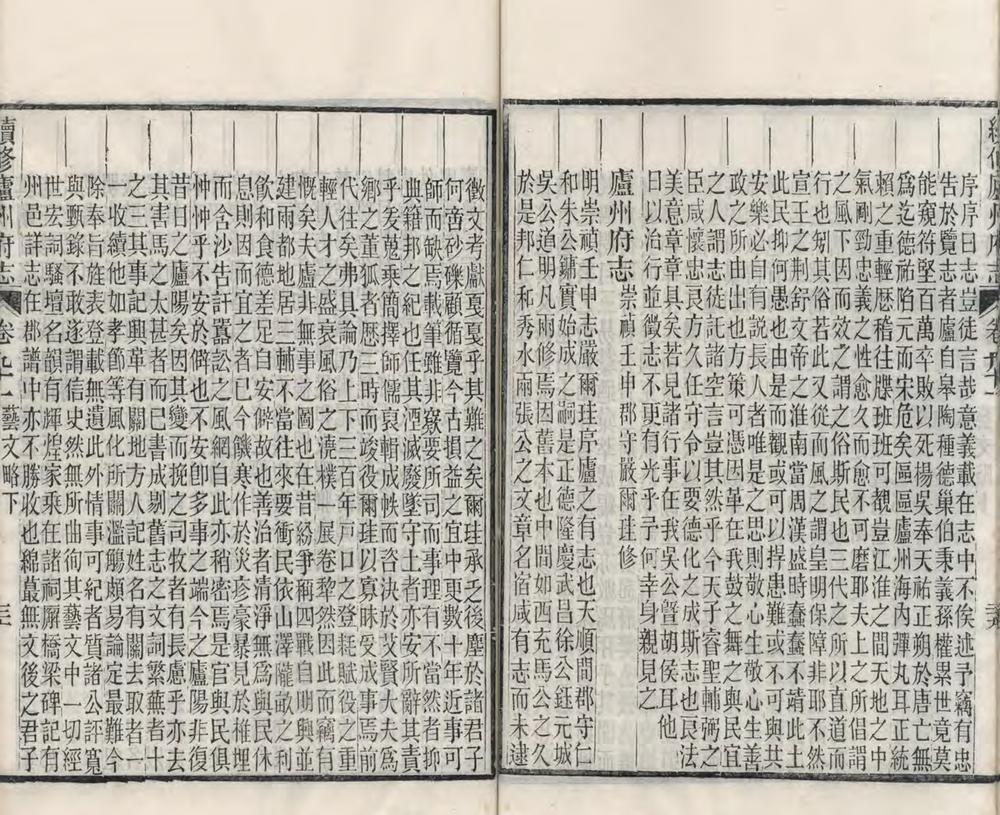 序序曰志豈徒言哉意義載在志中不俟述予竊有忠
告於覽志者廬自皋陶種德巢伯秉義孫權累世竟莫
能窺符堅百萬卒敗以死楊吳奉天祐正朔於唐亡無
爲迄德祐陷元而宋危矣區區廬州海內彈丸耳正統
賴之重輕歷稽往牒班班可覩豈江淮之間天地之中
氣剛勁忠義之性愈久而愈不可磨耶夫上之所倡謂
之風下因而效之謂之俗斯民也三代之所以直道而
行也矧其俗若此又從而風之謂皇明保障非耶不然
宣王之荆舒文帝之淮南當周漢盛時蠢蠢不靖此土
此民抑何愚也由是而觀或可以捍患難或不可與共
安樂必自有説長人者唯是之思則敬心生敬心生善
政之所以出也方策可憑因革在我鼓之舞之與民宜
之人謂志徒託諸空言豈其然乎今天子睿聖輔弼之
臣咸懷忠良方久任守令以要德化之成斯志也良法
美意章章具矣若見諸行事在我吳公曁胡侯耳他
日以治行並徵志不更有光乎予何幸身親見之
廬州府志 崇禎壬申郡守嚴爾珪修
明崇禎壬申志嚴爾珪序廬之有志也天順間郡守仁
和朱公鏞實始成之嗣是正德隆慶武昌徐公鈺元城
吳公道明凡兩修焉因舊本也中間如西充馬公之久
於是邦仁和秀水兩張公之文章名宿咸有志而未逮
續修廬州府志 卷九十一 藝文略下
徵文考獻戛戛乎其難之矣爾珪承乏後塵於諸君子
何啻砂礫顧循覽今古損益之宜中更數十年近事可
師而缺焉載筆雖非竅要所司而事理有不當然者抑
典籍邦之紀也任其湮滅廢墜守土者亦安所辭其責
乎爰蒐乘簡擇師儒裒輯成帙而咨決於艾賢大夫爲
鄉之董狐者歷三時而竣役爾珪以寡昧受成事焉前
代往矣弗具論乃上下三百年戸口之登耗賦役之重
輕人才之盛衰風俗之澆樸一展卷犂然因此而竊有
慨矣夫廬非無事之國也在昔紛爭稱四戰自明興並
建兩都地居三輔不當往來要衝民依山澤隴畝之利
飲和食德差足自安僻故也善治者清淨無爲與民休
息則因而宜之者已今饑寒作於災疹豪暴見於椎埋
而含沙告訐囂訟之風網自此亦稍密焉是官與民俱
忡忡乎不安於僻也不安卽多事之端今之廬陽非復
昔日之廬陽矣因其變而挽之司牧者有長慮乎亦去
其害馬之太甚者而已書成剔舊志之文詞繁蕪者十
之三其事記興革有關地方人記姓名有關去取者一
一收續他如孝節等風化所關濫觴頗易論定最難今
除奉旨旌表登載無遺此外情事可紀者質諸公評寬
與甄錄不敢遂謂信史然無所曲徇其藝文中一切經
世宏詞騷壇名韻有輝煌家乘在諸祠廨橋梁碑記有
州邑詳志在郡譜中亦不勝收也綿蕞無文後之君子